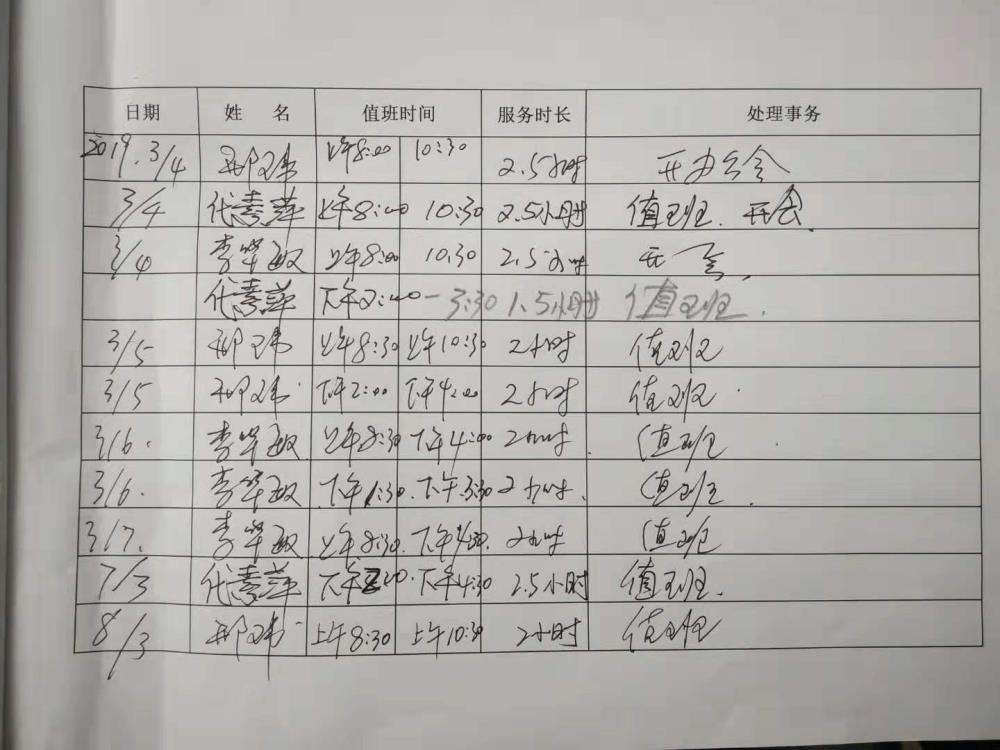 日期 姓 名 值班时间 服务时长 处理事务
2019.3/4 邢玮 上午8:00 10:30 2.5小时 开办公会
3/4 代素萍 上午8:00 10:30 2.5小时 值班.开会.
3/4 李学敏 上午8:00 10:30 2.5小时 开会.
代素萍 下午2:00-3:30 1.5小时 值班.
3/5 邢玮 上午8:30 上午10:30 2小时 值班
3/5 邢玮 下午2:00 下午4:00 2小时 值班.
3/6. 李学敏 上午8:30 下午4:00 2小时 值班
3/6. 李学敏 下午1:30. 下午3:30 2小时. 值班.
3/7. 李学敏 上午8:30. 2小时 值班
7/3 代素萍 下午2:00. 下午4:30 2.5小时 值班.
8/3 邢玮 上午8:30 上午10:30 2小时 值班